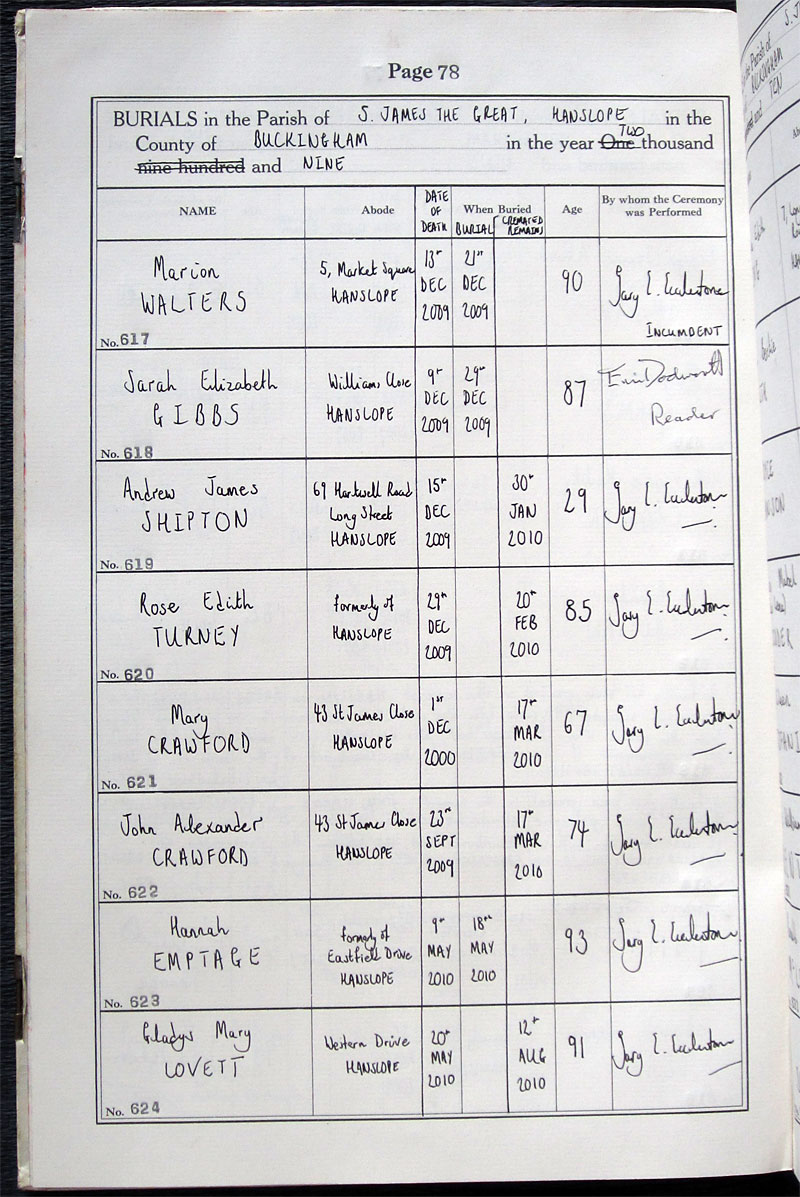 Page 78
BURIALS in the Parish of S. JAMES THE GREAT, HANSLOPE in the
County of BUCKINGHAM in the year One TWO thousand
nine hundred and NINE
NAME Abode DATE OF DEATH When Buried BURIAL CREMATED REMAINS Age By whom the Ceremony was Performed
Marion
WALTERS
No. 617
5, Market Square
HANSLOPE
13th
DEC
2009
21st
DEC
2009
90
Gary E. Ecclestone
INCUMBENT
Sarah Elizabeth
GIBBS
No. 618
Williams Close
HANSLOPE
9th
DEC
2009
29th
DEC
2009
87
Reader
Andrew James
SHIPTON
No. 619
69 Hartwell Road
Long Street
HANSLOPE
15th
DEC
2009
30th
JAN
2010
29
Gary E. Ecclestone
Rose Edith
TURNEY
No. 620
formerly of
HANSLOPE
29th
DEC
2009
20th
FEB
2010
85
Gary E. Ecclestone
Mary
CRAWFORD
No. 621
43 St James Close
HANSLOPE
1st
DEC
2000
17th
MAR
2010
67
Gary E. Ecclestone
John Alexander
CRAWFORD
No. 622
43 St James Close
HANSLOPE
23rd
SEPT
2009
17th
MAR
2010
74
Gary E. Ecclestone
Hannah
EMPTAGE
No. 623
formerly of
Eastfield Drive
HANSLOPE
9th
MAY
2010
18th
MAY
2010
93
Gary E. Ecclestone
Gladys Mary
LOVETT
No. 624
Western Drive
HANSLOPE
20th
MAY
2010
12th
AUG
2010
91
Gary E. Ecclestone